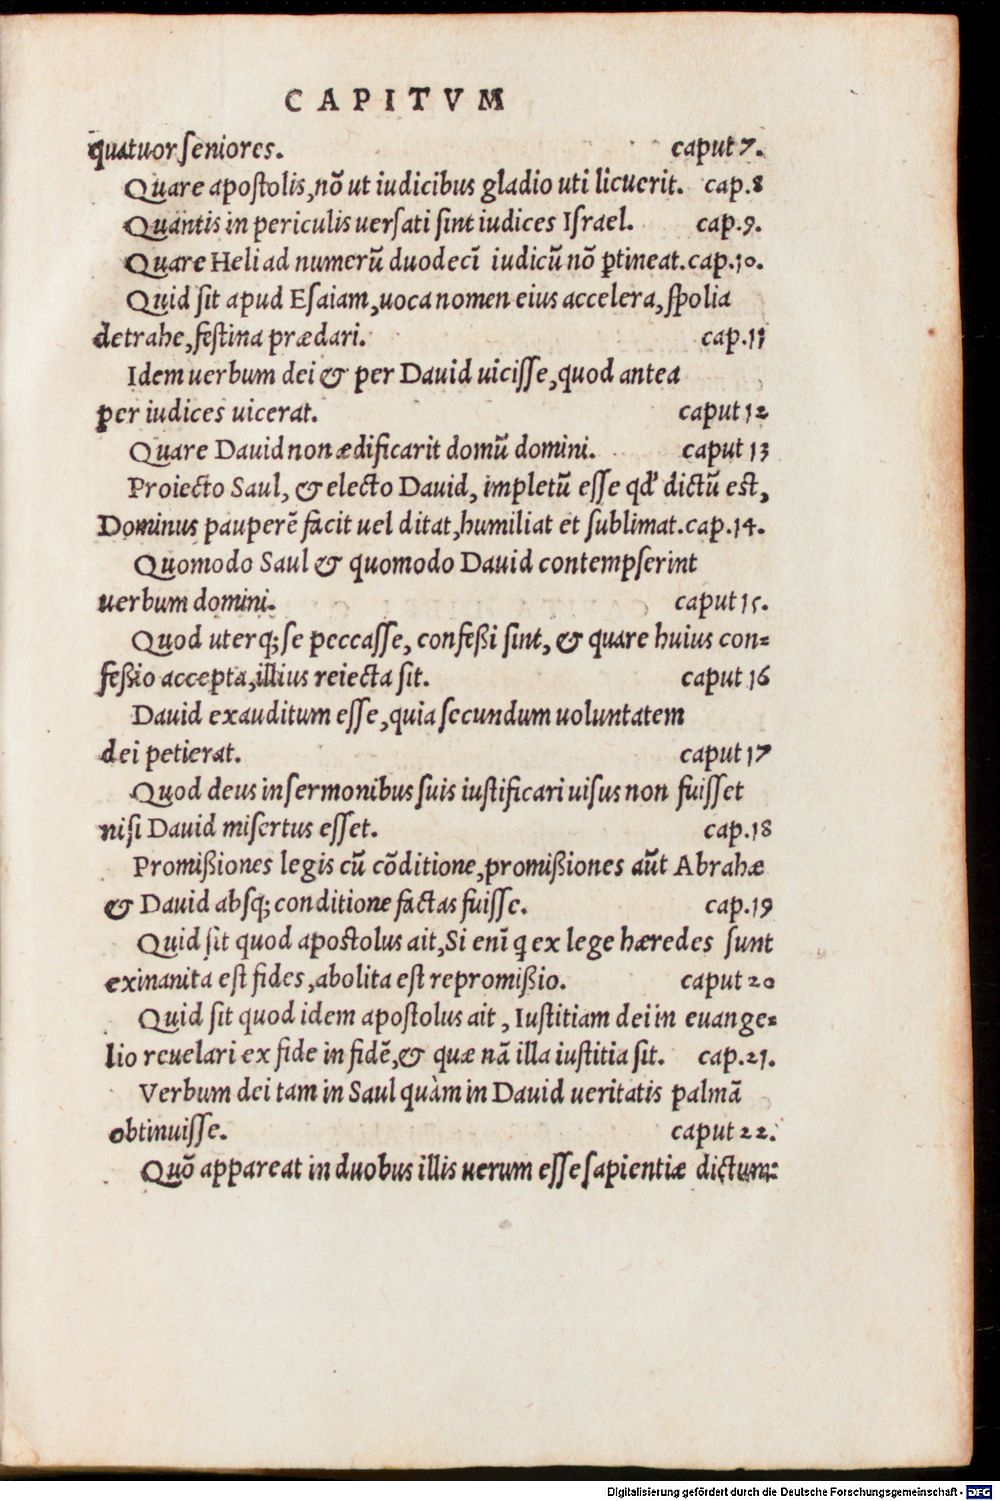 CAPITVM
quatuor seniores. caput 7.
Quare apostolis, nō ut iudicibus gladio uti licuerit. cap.8
Quantis in periculis uersati sint iudices Israel. cap.9.
Quare Heli ad numerū duodecī iudicū nō ꝑtineat. cap.10.
Quid sit apud Esaiam, uoca nomen eius accelera, spolia
detrahe, festina prædari. cap.11
Idem uerbum dei & per Dauid uicisse, quod antea
per iudices uicerat. caput 12
Quare Dauid non ædificarit domū domini. caput 13
Proiecto Saul, & electo Dauid, impletū esse qd' dictū est,
Dominus pauperē facit uel ditat, humiliat et sublimat. cap.14.
Quomodo Saul & quomodo Dauid contempserint
uerbum domini. caput 15.
Quod uterq; se peccasse, confeßi sint, & quare huius con=
feßio accepta, illius reiecta sit. caput 16
Dauid exauditum esse, quia secundum uoluntatem
dei petierat. caput 17
Quod deus in sermonibus suis iustificari uisus non fuisset
nisi Dauid misertus esset. cap.18
Promißiones legis cū cōditione, promißiones aūt Abrahæ
& Dauid absq; conditione factas fuisse. cap.19
Quid sit quod apostolus ait, Si enī q ex lege hæredes sunt
exinanita est fides, abolita est repromißio. caput 20
Quid sit quod idem apostolus ait, Iustitiam dei in euange=
lio reuelari ex fide in fidē, & quæ nā illa iustitia sit. cap.21.
Verbum dei tam in Saul quàm in Dauid ueritatis palmā
obtinuisse. caput 22.
Quō appareat in duobus illis uerum esse sapientiæ dictum:
Digitalisierung gefördert durch die Deutsche Forschungsgemeinschaft - DFG